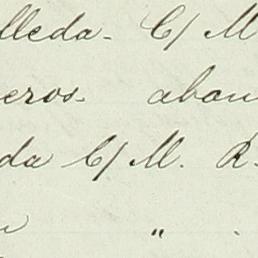 lleda. C/ M
eros. aban
da C/ M. R.
"